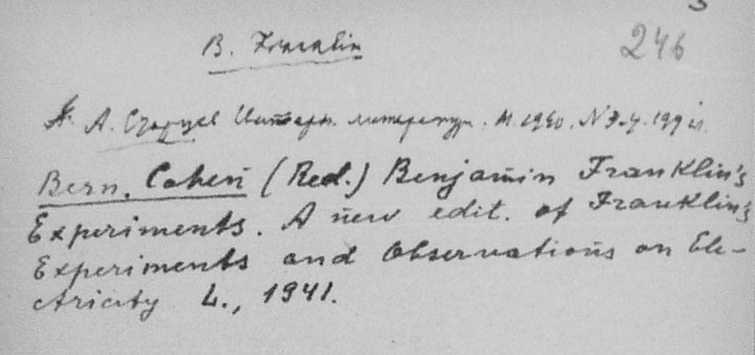 246
B. Franklin
А. Старцев Интерн. литература. М. 1940. N 3-4.
Bern. Cohen (Red.) Benjamin Franklin's
Experiments. A new edit. of Franklin's
Experiments and Observations on Ele-
ctricity L., 1941.